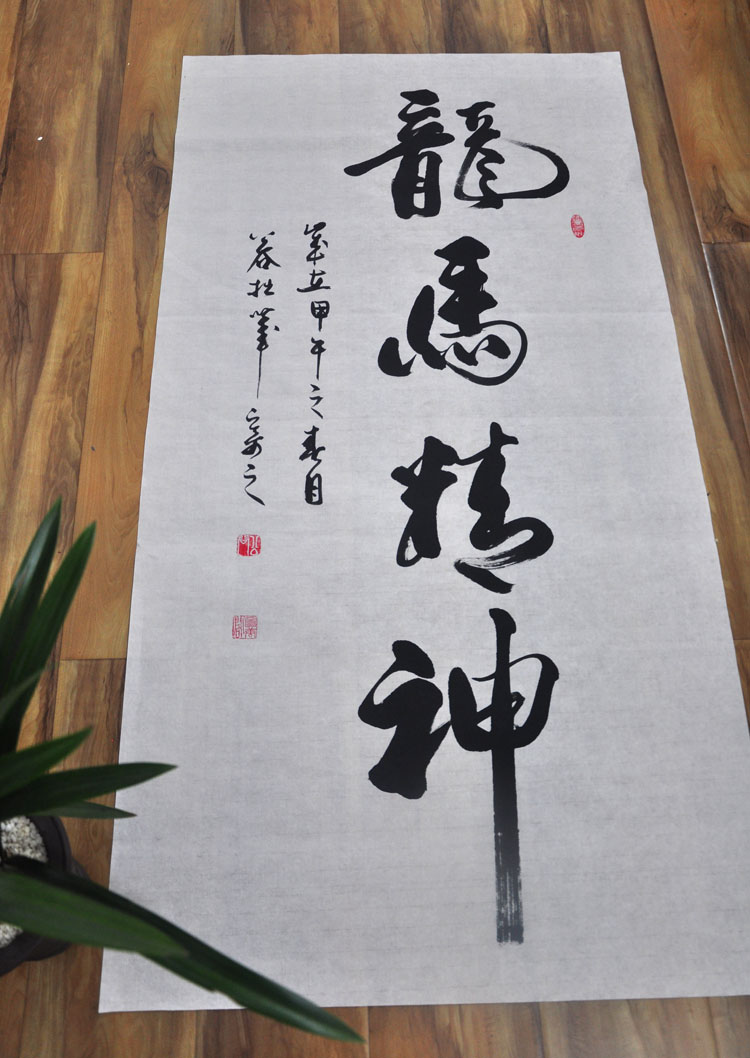 龍馬精神
歲在甲午之春月
拙筆
之